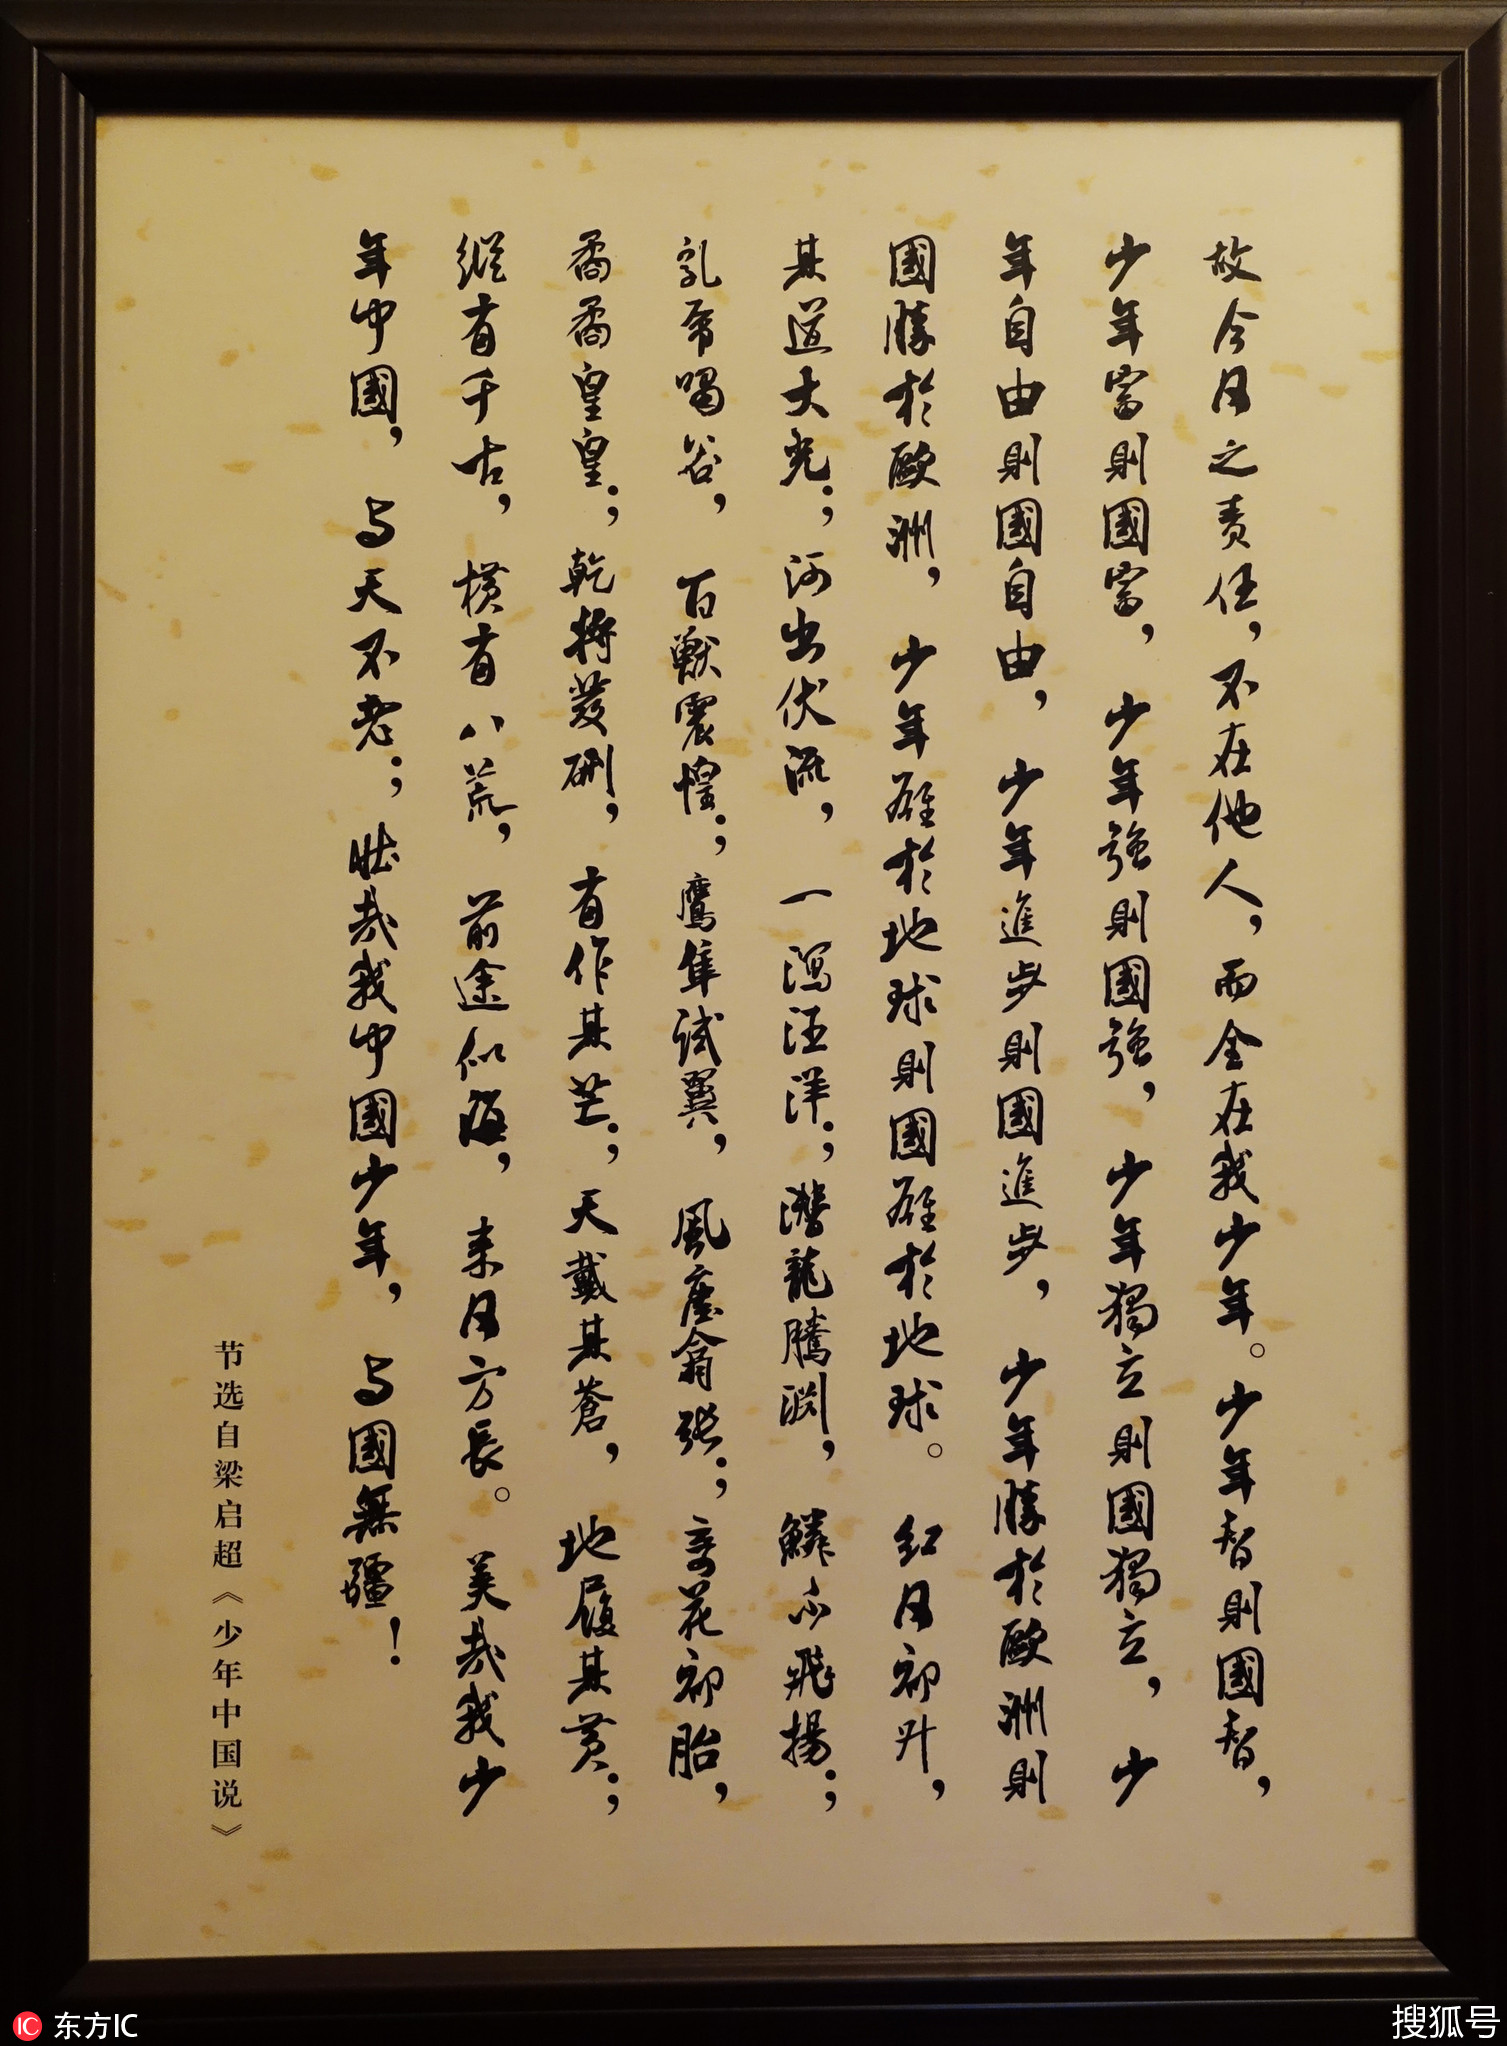 故今日之责任，不在他人，而全在我少年。少年智則國智，
少年富則國富，少年強則國強，少年獨立則國獨立，少
年自由則國自由，少年進步則國進步，少年勝於歐洲則
國勝於歐洲，少年雄於地球則國雄於地球。红日初升，
其道大光；河出伏流，一瀉汪洋；潛龍騰淵，鱗爪飛揚；
乳虎嘯谷，百獸震惶；鷹隼試翼，風塵翕張；奇花初胎，
矞矞皇皇；乾將發硎，有作其芒；天戴其蒼，地履其黄；
縱有千古，横有八荒，前途似海，来日方長。美哉我少
年中國，与天不老；壮哉我中國少年，与國無疆！
节选自梁启超《少年中国说》
IC 东方IC
搜狐号